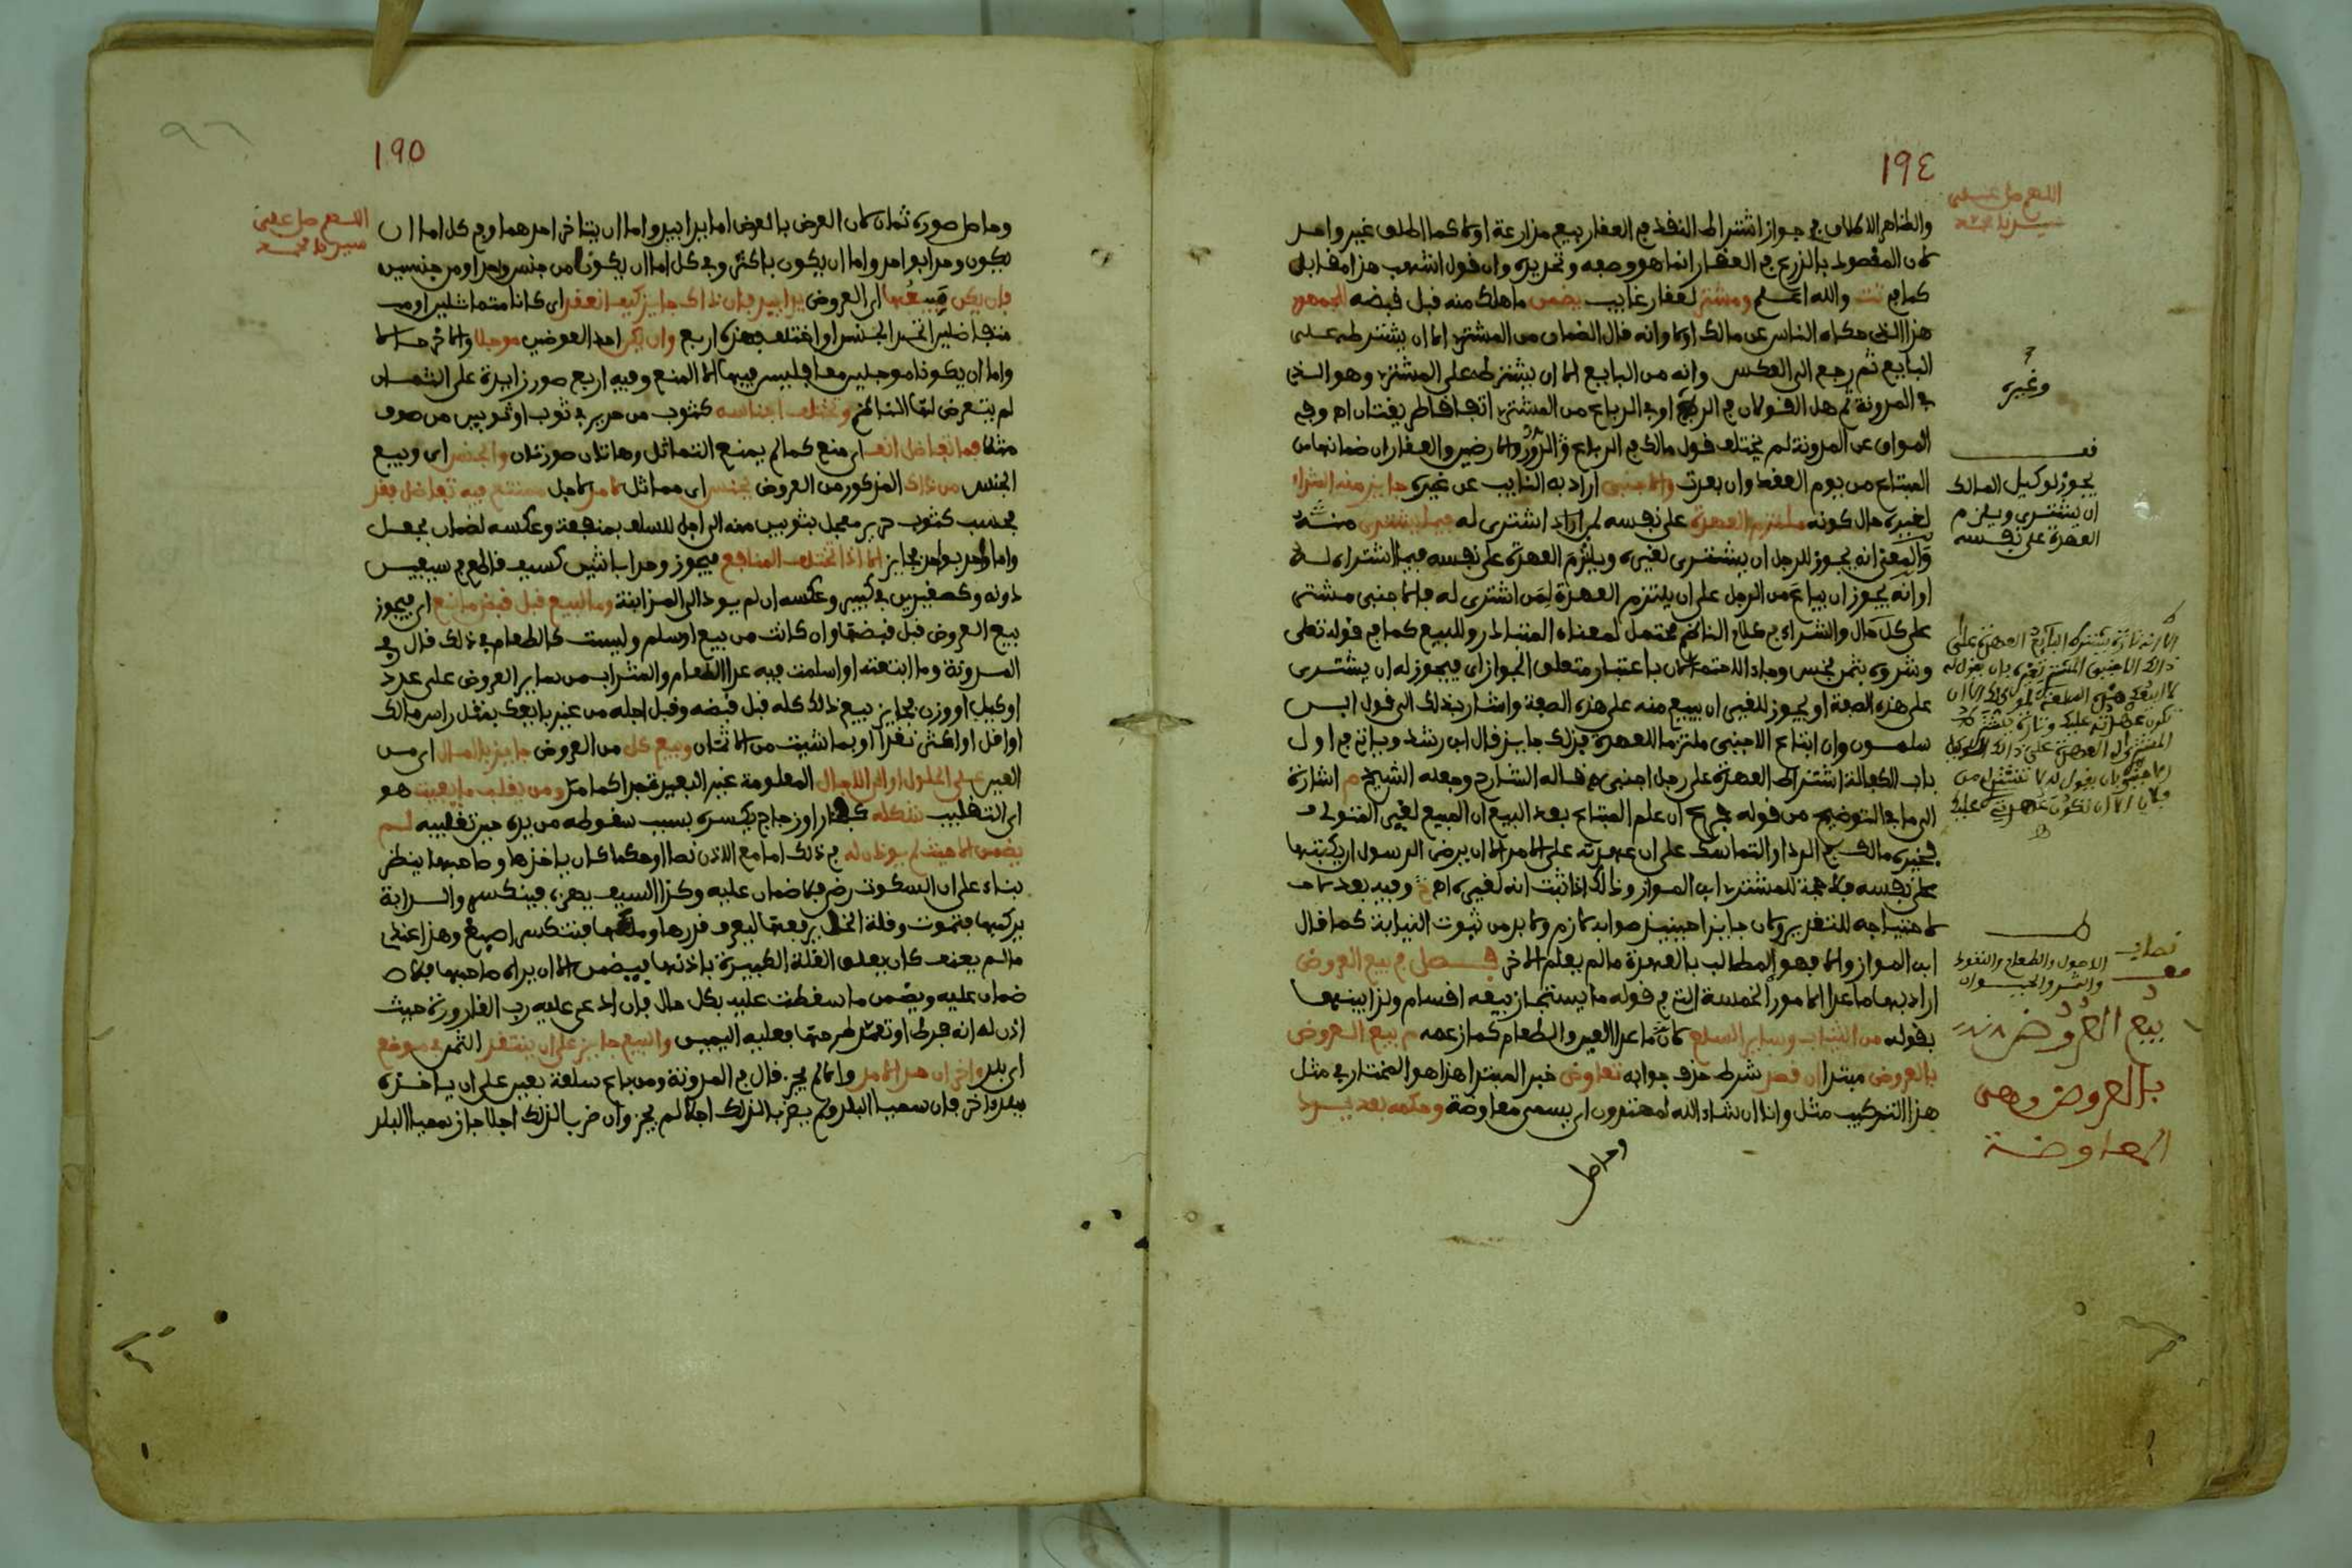 ١٩٤
اللهم صل على
سيدنا محمد
والظاهر الاطلاق في جواز اشتراط النقد في العقار بيع مزارعة او لا كما اطلق غير واحد
لان المقصود بالزرع في العقار انما هو وصفه وتحديده وان قول اشهب هذا مقابل
كما في تت والله اعلم ومشتر لعقار غايب يضمن ما هلك منه قبل قبضه الجمهور
هذا الذي حكاه الناس عن مالك اولا وانه قال الضمان من المشتري الا ان يشترطه على
البايع ثم رجع الى العكس وانه من البايع الا ان يشترطه على المشتري وهو الذي
في المدونة ثم هل القولان في الربع او في الرباع من المشتري اتفاقا طريقتان اه وفي
المواق عن المدونة لم يختلف قول مالك في الرباع والدور والارضين والعقار ان ضمانها من
المبتاع من يوم العقد وان بعدت والاجنبي اراد به النايب عن غيره جايز منه الشراء
لغيره حال كونه ملتزم العهدة على نفسه لمن اراد اشترى له فيما يشتري منه
والمعنى انه يجوز للرجل ان يشتري لغيره ويلتزم العهدة على نفسه فيما اشتراه له
او انه يجوز ان يباع من الرجل على ان يلتزم العهدة لمن اشترى له فالاجنبي مشتر
على كل حال والشراء في كلام الناظم محتمل لمعناه المتبادر وللبيع كما في قوله تعلى
وشروه بثمن بخس وجاء الاحتمالان باعتبار متعلق الجواز اي فيجوز له ان يشتري
على هذه الصفة او يجوز للغير ان يبيع منه على هذه الصفة واشار بذلك الى قول ابن
سلمون وان ابتاع الاجنبي ملتزما للعهدة فذلك جايز قال ابن رشد وياتي في اول
باب الكفالة اشتراط العهدة على رجل اجنبي قاله الشارح وجعله الشيخ م اشارة
الى ما في التوضيح من قوله ان علم المبتاع بعد البيع ان المبيع لغير المتولي
فخيره مالك في الرد او التماسك على ان عهدته على الامر الا ان يرضى الرسول ان يكتبها
على نفسه فلا حجة للمشتري ابن المواز وذلك اذا ثبت انه لغيره اه وفيه بعد
لاحتياجه للتقدير ولان جايزا حينيذ صوابه لازم ولا بد من ثبوت النيابة كما قال
ابن المواز والا فهو المطالب بالعهدة ما لم يعلم الاخر فصل في بيع العروض
اراد بها ما عدا الامور الخمسة التي في قوله ما يستجاز بيعه اقسام ولذا بينها
بقوله من الثياب وساير السلع لان ما عدا العين والطعام كما زعمه م بيع العروض
بالعروض مبتدا ان قصد شرط حذف جوابه تعاوض خبر المبتدا هذا هو المختار في مثل
هذا التركيب مثل وانا ان شاء الله لمهتدون اي يسمى معاوضة وحكمه بعد يرد
وحاصل
وغيره
قف
يجوز لوكيل المالك
ان يشتري ويلتزم
العهدة على نفسه
الاصول والطعام والنقود
بيع العروض
بالعروض وهي
المعاوضة
١٩٥
اللهم صل على
سيدنا محمد
وحاصل صوره ثمان لان العرض بالعرض اما يدا بيد واما ان يتاخر احدهما وفي كل اما ان
يكون واحد بواحد واما ان يكون باكثر وفي كل اما ان يكونا من جنس واحد او من جنسين
فان يكن مبيعها اي العروض يدا بيد فان ذاك جايز كيف انعقد اي كانا متماثلين او
متفاضلين اتحد الجنس او اختلف فهذه اربع وان يكن احد العوضين موجلا والاخر حالا
واما ان يكونا موجلين معا فليس فيها الا المنع وفيه اربع صور زايدة على الثمان
لم يتعرض لها الناظم وتختلف اجناسه كثوب من حرير في ثوب او ثوبين من صوف
مثلا فما تفاضل انف اي منع كما لم يمنع التماثل وهاتان صورتان والجنس اي وبيع
الجنس من ذاك المذكور من العروض بجنس اي مماثل لامد لاجل ممتنع فيه تفاضل فقد
فحسب كثوب حرير معجل بثوبين منه الى اجل للسلف بمنفعة وعكسه لضمان بجعل
واما واحد بواحد فجايز الا اذا تختلف المنافع فيجوز واحد باثنين كسيف قاطع في سيفين
دونه وكصغيرين في كبير وعكسه ان لم يود الى المزابنة وما لبيع قبل قبض مانع اي فيجوز
بيع العروض قبل قبضها وان كانت من بيع او سلم وليست كالطعام في ذلك قال في
المدونة وما ابتعته او اسلمت فيه عدا الطعام والشراب من ساير العروض على عدد
او كيل او وزن فجايز بيع ذلك كله قبل قبضه وقبل اجله من غير بايعك بمثل راس مالك
او اقل او اكثر نقدا او بما شيت من الاثمان وبيع كل من العروض جايز بالمال اي من
العين على الحلول او الى الاجال المعلومة غير البعيدة جدا كما مر ومن يقلب ما يفيت هو
اي التقليب شكله كفخار او زجاج يكسره بسبب سقوطه من يده حين تقليبه لم
يضمن الا حيث لم يوذن له في ذلك اما مع الاذن نصا او حكما كان ياخذها وصاحبها ينظر
بناء على ان السكوت رضى فلا ضمان عليه وكذا السيف يهزه فينكسر والدابة
يركبها فتموت وقلة الخل يرفعها ليعرف قدرها وملاها فتنكسر اصبغ وهذا عندي
ما لم يعنف كان يعلق القلة الكبيرة باذنها فيضمن الا ان يراه صاحبها فلا
ضمان عليه ويضمن ما سقطت عليه بكل حال فان ادعى عليه رب القارورة حيث
اذن له انه فرط او تعمد طرحها فعليه اليمين والبيع جايز على ان ينتقد الثمن في موضع
اي بلد واخر ان حد الامد والا لم يجز قال في المدونة ومن باع سلعة بعين على ان ياخذه
ببلد واخر فان سميا البلد ولم يضربا لذلك اجلا لم يجز وان ضربا لذلك اجلا جاز سميا البلد